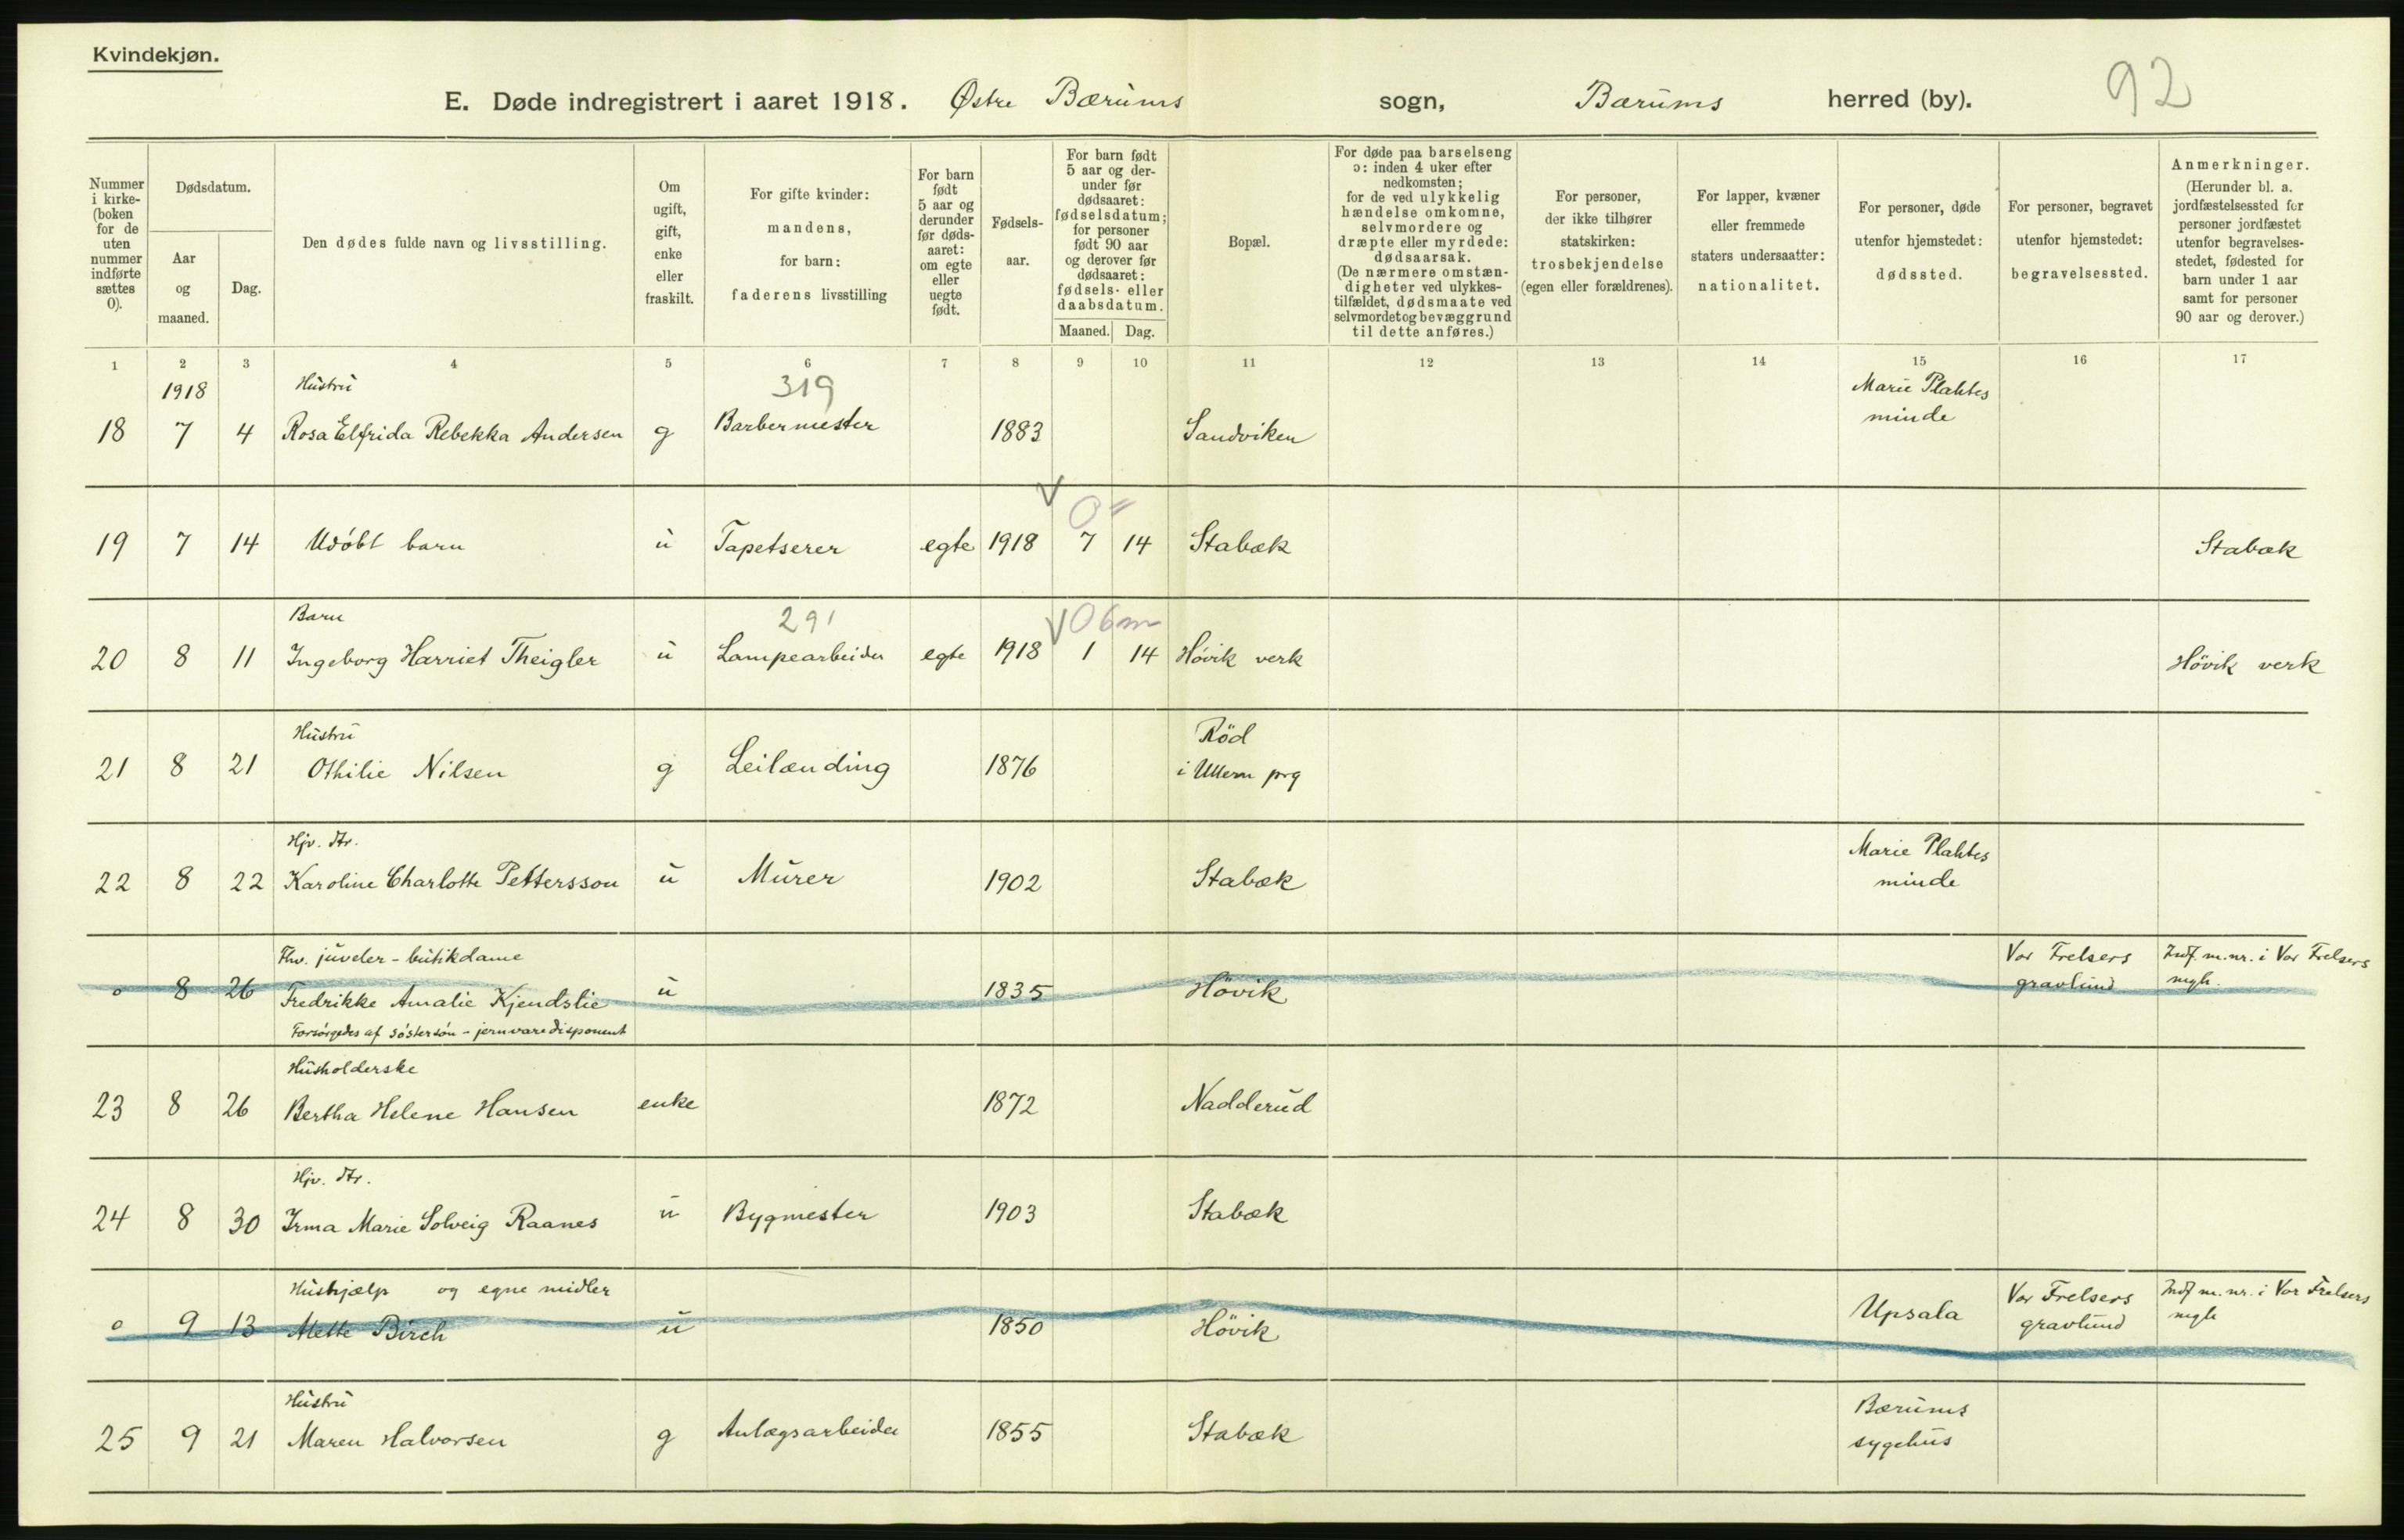 Kvindekjøn.
E. Døde indregistrert i aaret 1918. Østre Bærums sogn, Bærums herred (by). 92
Nummer i kirke- (boken for de uten nummer indførte sættes 0).
Dødsdatum.
Aar og maaned.
Dag.
Den dødes fulde navn og livsstilling.
Om ugift, gift, enke eller fraskilt.
For gifte kvinder: mandens, for barn: faderens livsstilling
For barn født 5 aar og derunder før døds- aaret: om egte eller uegte født.
Fødsels- aar.
For barn født 5 aar og der- under før dødsaaret: fødselsdatum; for personer født 90 aar og derover før dødsaaret: fødsels- eller daabsdatum.
Maaned. Dag.
Bopæl.
For døde paa barselseng ɔ: inden 4 uker efter nedkomsten; for de ved ulykkelig hændelse omkomne, selvmordere og dræpte eller myrdede: dødsaarsak. (De nærmere omstæn- digheter ved ulykkes- tilfældet, dødsmaate ved selvmordet og bevæggrund til dette anføres.)
For personer, der ikke tilhører statskirken: trosbekjendelse (egen eller forældrenes).
For lapper, kvæner eller fremmede staters undersaatter: nationalitet.
For personer, døde utenfor hjemstedet: dødssted.
For personer, begravet utenfor hjemstedet: begravelsessted.
Anmerkninger. (Herunder bl. a. jordfæstelsessted for personer jordfæstet utenfor begravelses- stedet, fødested for barn under 1 aar samt for personer 90 aar og derover.)
1 2 3 4 5 6 7 8 9 10 11 12 13 14 15 16 17
1918 Hustru 319 Marie Plahtes
18 7 4 Rosa Elfrida Rebekka Andersen g Barbermester 1883 Sandviken minde
0
19 7 14 Udøbt barn u Tapetserer egte 1918 7 14 Stabæk Stabæk
Barn 291 06m
20 8 11 Ingeborg Harriet Theigler u Lampearbeider egte 1918 1 14 Høvik verk Høvik verk
Hustru Röd
21 8 21 Othilie Nilsen g Leilænding 1876 i Ullern prg
Hjv. dtr. Marie Plahtes
22 8 22 Karoline Charlotte Pettersson u Murer 1902 Stabæk minde
Fhv. juveler-butikdame Vor Frelsers Indf. m. nr. i Vor Frelsers
0 8 26 Fredrikke Amalie Kjendslie u 1835 Høvik gravlund mgh.
Forsørgedes af søstersøn - jernvaredisponent
Husholderske
23 8 26 Bertha Helene Hansen enke 1872 Nadderud
Hjv. dtr.
24 8 30 Irma Marie Solveig Raanes u Bygmester 1903 Stabæk
Hushjælp og egne midler Vor Frelsers Indf m. nr. i Vor Frelsers
0 9 13 Mette Birch u 1850 Høvik Upsala gravlund mgh
Hustru Bærums
25 9 21 Maren Halvorsen g Anlægsarbeider 1855 Stabæk sygehus